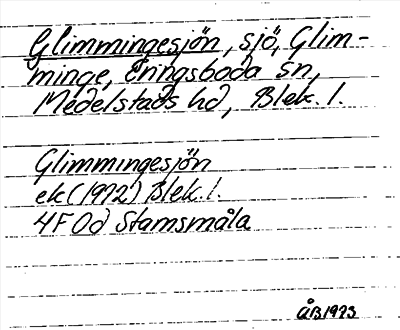 Glimmingesjön, sjö, Glim-
minge, Eringsboda sn,
Medelstads hd, Blek. l.
Glimmingesjön
ek (1972) Blek. l.
4F 0d Stamsmåla
ÅB 1973